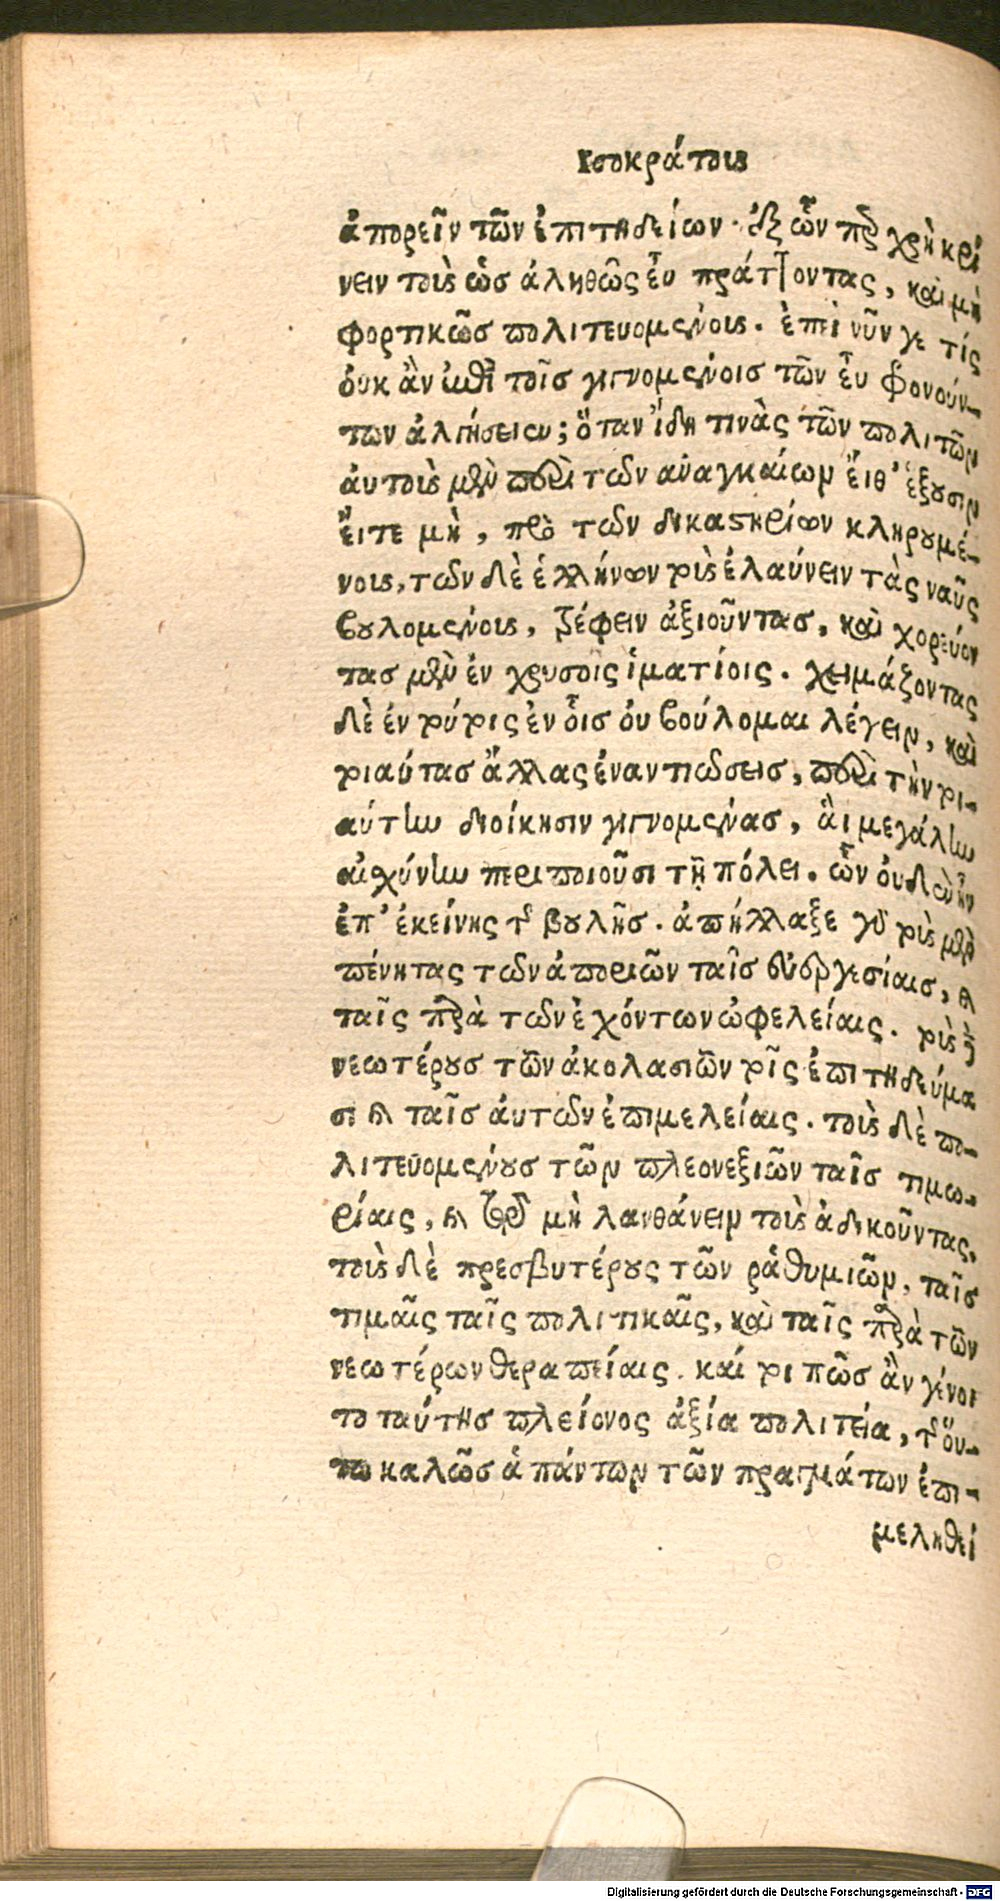 Ισοκράτους
ἀπορεῖν τῶν ἐπιτηδείων· ἐξ ὧν περ χρὴ κρί
νειν τοὺς ὡσ ἀληθῶς εὖ πράττοντας, καὶ μὴ
φορτικῶσ πολιτευομένους. ἐπεὶ νῦν γε τίς
ὀυκ ἂν ἐπὶ τοῖσ γιγνομένοισ τῶν εὖ φρονούν-
των ἀλγήσειεν; ὅταν ἴδη τινὰς τῶν πολιτῶν
ἀυτοὺς μὲν περὶ των ἀναγκαίων ἔιθ' ἕξουσιν
ἔιτε μὴ, πρὸ των δικαστηρίων κληρουμέ-
νους, των δὲ ἑλλήνων τοὺς ἐλαύνειν τὰς ναῦς
βουλομένους, τρέφειν ἀξιοῦντασ, καὶ χορεύον
τασ μὲν ἐν χρυσοῖς ἱματίοις. χειμάζοντας
δὲ ἐν τούτοις ἐν οἷσ ὀυ βούλομαι λέγειν, καὶ
τοιαύτασ ἄλλας ἐναντιώσεισ, περὶ τὴν τοι-
αύτην διοίκησιν γιγνομένασ, ἃι μεγάλην
αἰσχύνην περιποιοῦσι τῇ πόλει. ὧν ὀυδὲν ἦν
ἐπ' ἐκείνης τῆς βουλῆσ. ἀπήλλαξε γὰρ τοὺς μὲν
πένητας των ἀποριῶν ταῖσ ἐυεργεσίαισ, καὶ
ταῖς παρὰ των ἐχόντων ὠφελείαις. τοὺς δὲ
νεωτέρουσ τῶν ἀκολασιῶν τοῖς ἐπιτηδεύμα
σι καὶ ταῖσ ἀυτων ἐπιμελείαις. τοὺς δὲ πο-
λιτευομένουσ τῶν πλεονεξιῶν ταῖσ τιμω-
ρίαις, καὶ τῷ μὴ λανθάνειν τοὺς ἀδικοῦντας,
τοὺς δὲ πρεσβυτέρους τῶν ῥαθυμιῶν, ταῖσ
τιμαῖς ταῖς πολιτικαῖς, καὶ ταῖς παρὰ τῶν
νεωτέρων θεραπείαις. καί τοι πῶσ ἂν γένοι
το ταύτησ πλείονος ἀξία πολιτεία, τῆς ὅυ-
τω καλῶσ ἁπάντων τῶν πραγμάτων ἐπι-
μεληθεί
Digitalisierung gefördert durch die Deutsche Forschungsgemeinschaft - DFG